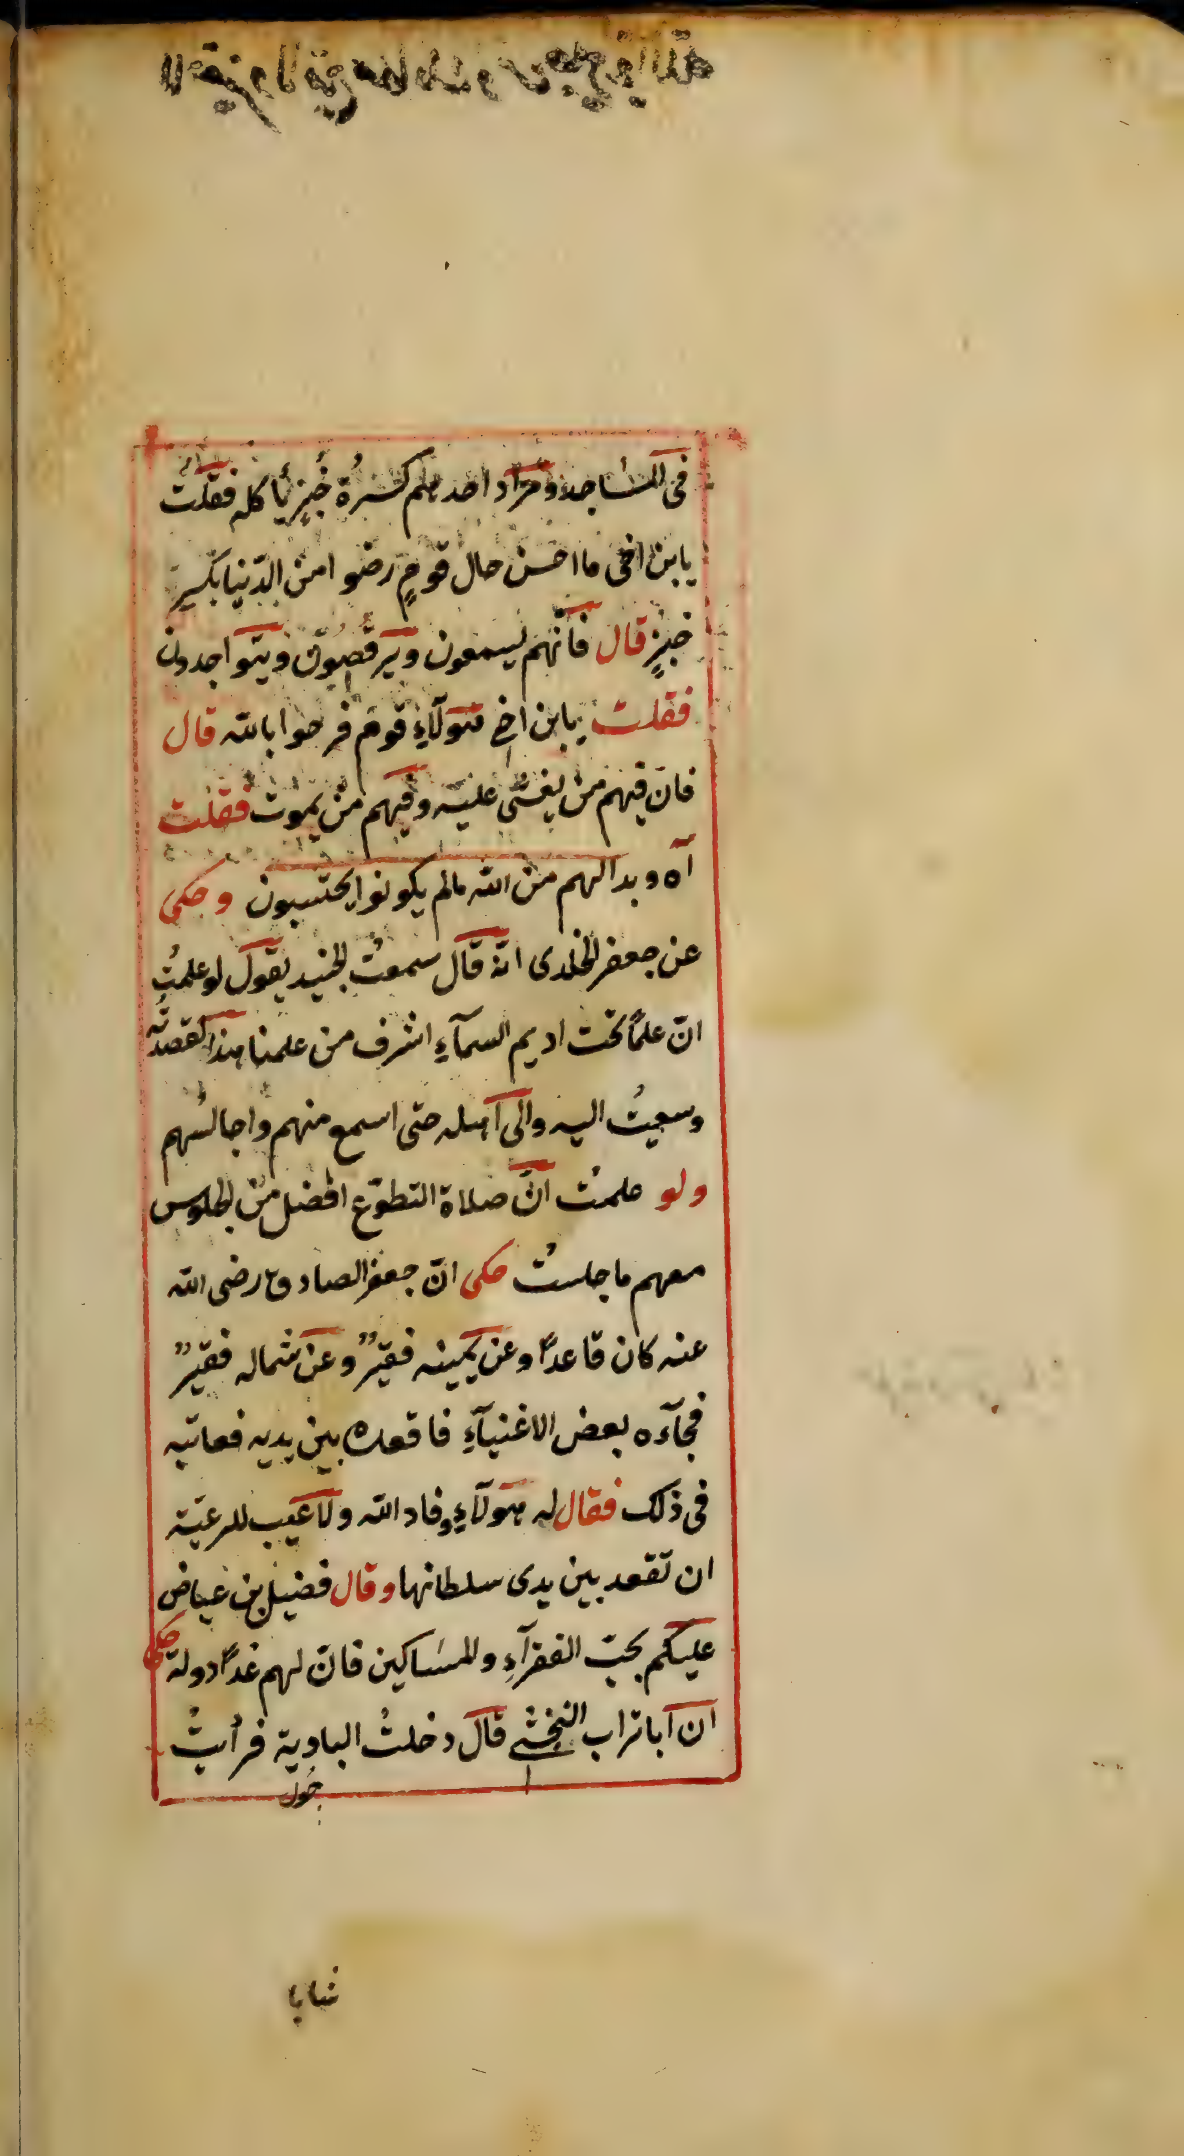 فى المساجد ومراد احد منهم كسرة خبز يأكله فقلت
يابن اخى ما احسن حال قوم رضوا من الدّنيا بكسير
خبز قال فانّهم يسمعون ويرقصون ويتواجدون
فقلت يابن اخى هؤلآء قوم فرحوا بالله قال
فان فيهم من يغشى عليه وفيهم من يموت فقلت
آه وبدا لهم من الله مالم يكونوا يحتسبون وحكى
عن جعفر الخلدى انّه قال سمعت الجنيد يقول لو علمت
انّ علمًا تحت اديم السمآء اشرف من علمنا هذا لقصدته
وسعيت اليه والى اهله حتى اسمع منهم واجالسهم
ولو علمت انّ صلاة التطوّع افضل من الجلوس
معهم ما جلست حكى انّ جعفر الصادق رضى الله
عنه كان قاعدًا وعن يمينه فقيرٌ وعن شماله فقيرٌ
فجآءه بعض الاغنيآء فاقعده بين يديه فعاتبه
فى ذلك فقال له هؤلآء وفاد الله ولا عيب للرعيّة
ان تقعد بين يدى سلطانها وقال فضيل بن عياض
عليكم بحبّ الفقرآء والمساكين فانّ لهم غدًا دولة حكى
ان ابا تراب النخشبى قال دخلت البادية فرأيت
شابا